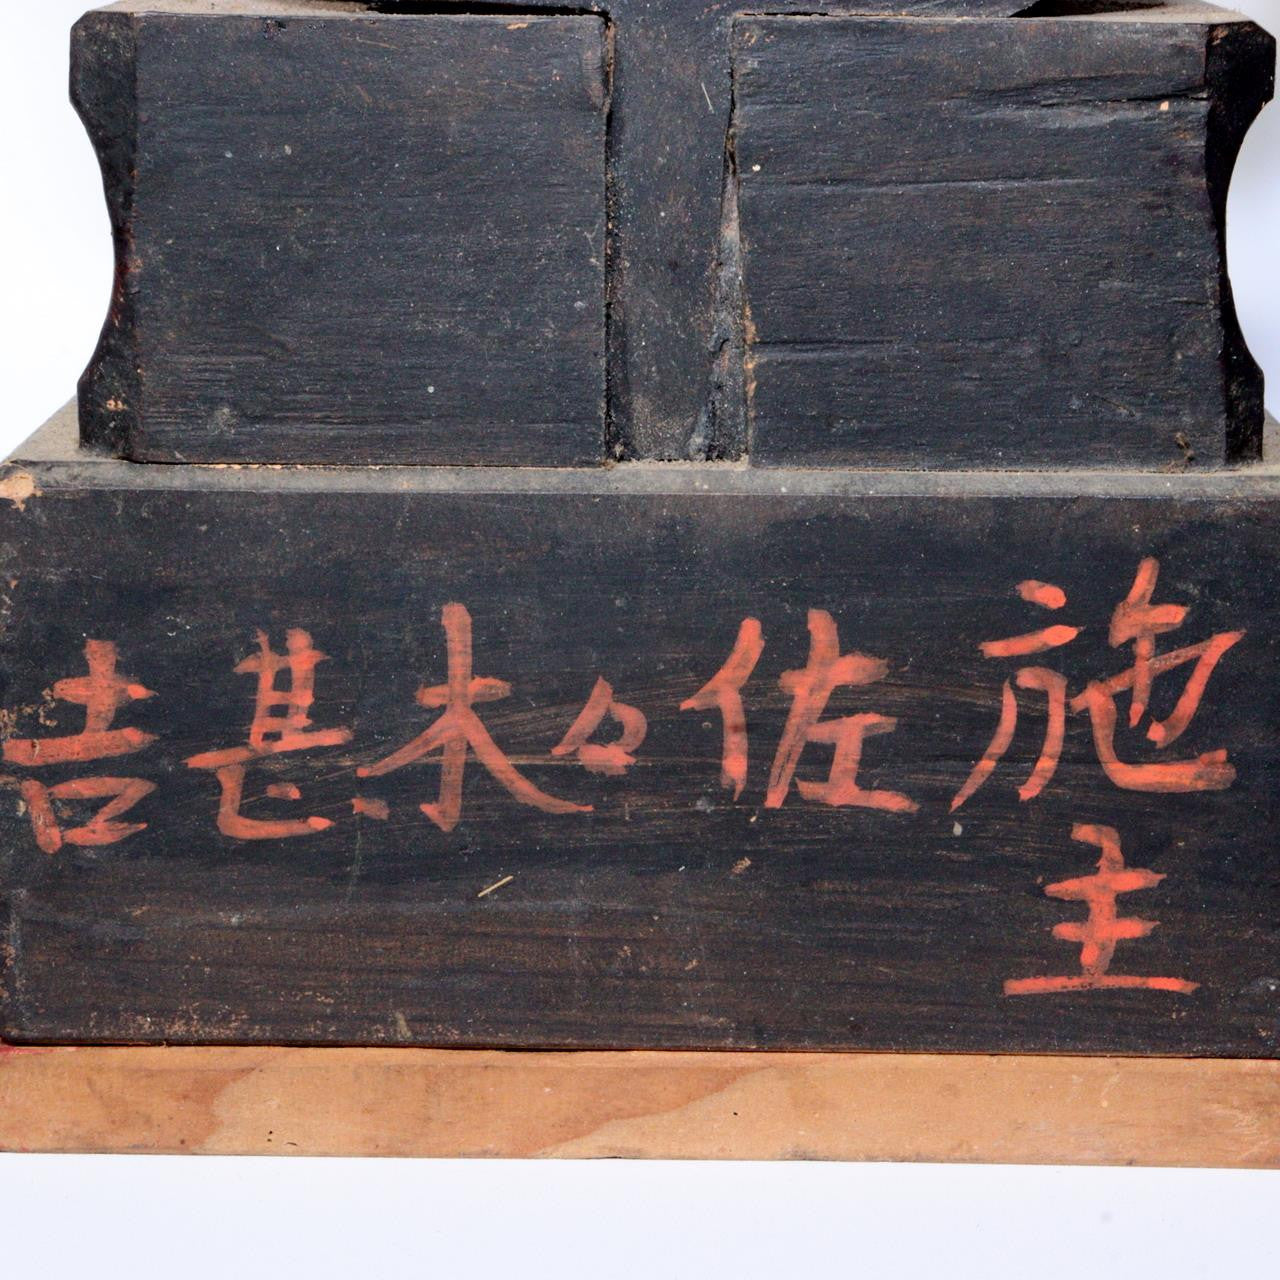 施主
佐々木甚吉